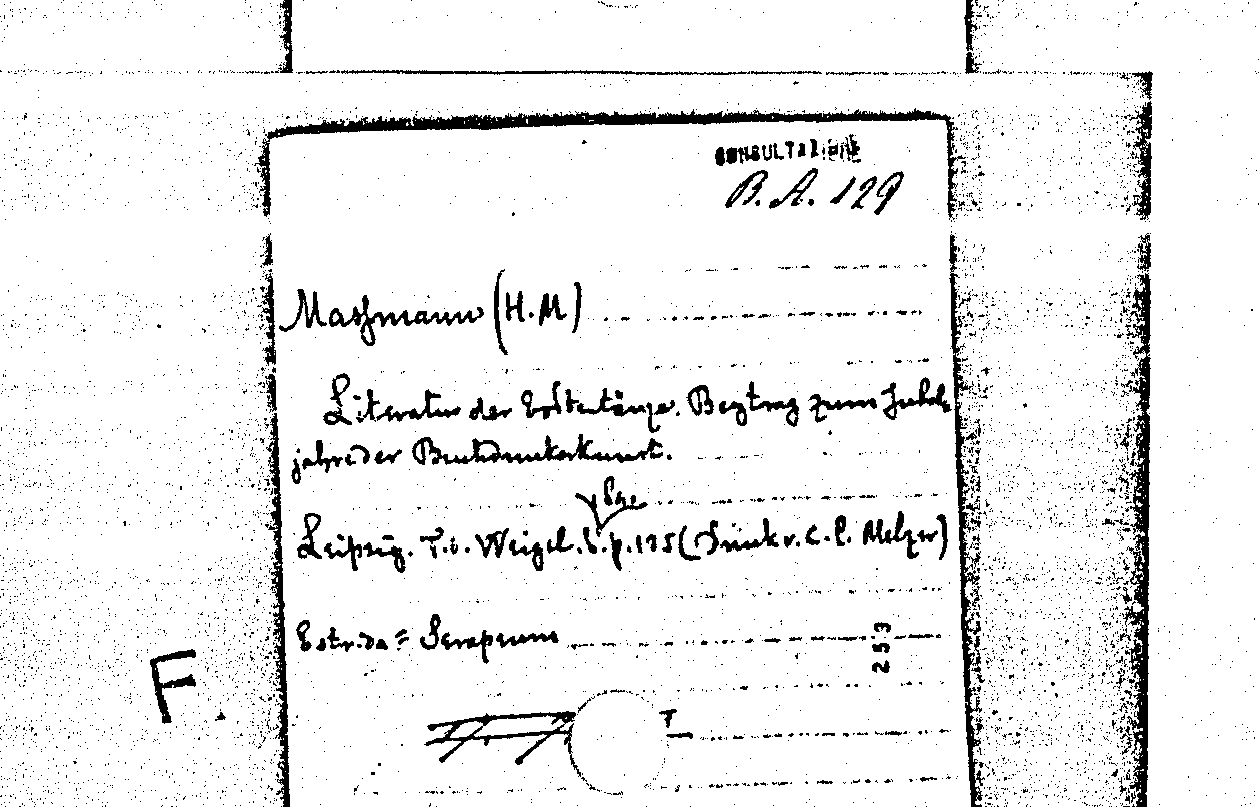 CONSULTAZIONE
B. A. 129
Massmann (H. M)
Literatur der Todtentänze. Beytrag zum Jubel-
jahre der Buchdruckerkunst.
Leipzig. T. O. Weigel. 8. p. 135 (Druck v. C. P. Melzer)
Estr. da = Serapeum
253
F.
T